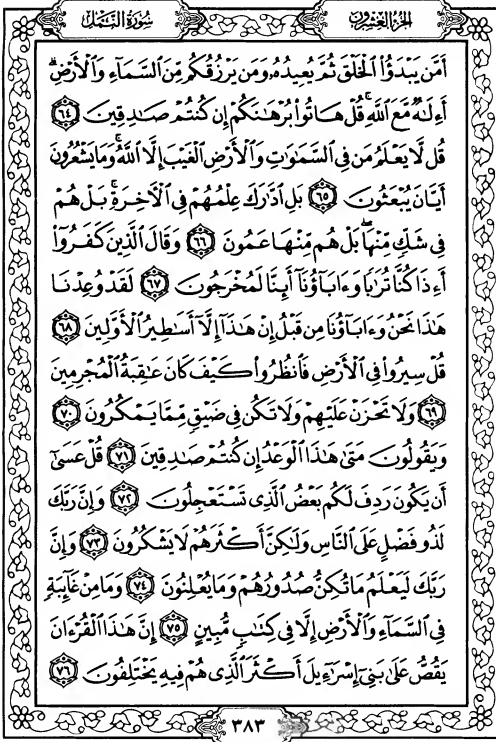 الجزء العشرون سورة النمل
أَمَّن يَبْدَؤُا۟ ٱلْخَلْقَ ثُمَّ يُعِيدُهُۥ وَمَن يَرْزُقُكُم مِّنَ ٱلسَّمَآءِ وَٱلْأَرْضِ ۗ
أَءِلَٰهٌ مَّعَ ٱللَّهِ ۚ قُلْ هَاتُوا۟ بُرْهَٰنَكُمْ إِن كُنتُمْ صَٰدِقِينَ ٦٤
قُل لَّا يَعْلَمُ مَن فِى ٱلسَّمَٰوَٰتِ وَٱلْأَرْضِ ٱلْغَيْبَ إِلَّا ٱللَّهُ ۚ وَمَا يَشْعُرُونَ
أَيَّانَ يُبْعَثُونَ ٦٥ بَلِ ٱدَّٰرَكَ عِلْمُهُمْ فِى ٱلْءَاخِرَةِ ۚ بَلْ هُمْ
فِى شَكٍّ مِّنْهَا ۖ بَلْ هُم مِّنْهَا عَمُونَ ٦٦ وَقَالَ ٱلَّذِينَ كَفَرُوٓا۟
أَءِذَا كُنَّا تُرَٰبًا وَءَابَآؤُنَآ أَئِنَّا لَمُخْرَجُونَ ٦٧ لَقَدْ وُعِدْنَا
هَٰذَا نَحْنُ وَءَابَآؤُنَا مِن قَبْلُ إِنْ هَٰذَآ إِلَّآ أَسَٰطِيرُ ٱلْأَوَّلِينَ ٦٨
قُلْ سِيرُوا۟ فِى ٱلْأَرْضِ فَٱنظُرُوا۟ كَيْفَ كَانَ عَٰقِبَةُ ٱلْمُجْرِمِينَ
٦٩ وَلَا تَحْزَنْ عَلَيْهِمْ وَلَا تَكُن فِى ضَيْقٍ مِّمَّا يَمْكُرُونَ ٧٠
وَيَقُولُونَ مَتَىٰ هَٰذَا ٱلْوَعْدُ إِن كُنتُمْ صَٰدِقِينَ ٧١ قُلْ عَسَىٰٓ
أَن يَكُونَ رَدِفَ لَكُم بَعْضُ ٱلَّذِى تَسْتَعْجِلُونَ ٧٢ وَإِنَّ رَبَّكَ
لَذُو فَضْلٍ عَلَى ٱلنَّاسِ وَلَٰكِنَّ أَكْثَرَهُمْ لَا يَشْكُرُونَ ٧٣ وَإِنَّ
رَبَّكَ لَيَعْلَمُ مَا تُكِنُّ صُدُورُهُمْ وَمَا يُعْلِنُونَ ٧٤ وَمَا مِنْ غَآئِبَةٍ
فِى ٱلسَّمَآءِ وَٱلْأَرْضِ إِلَّا فِى كِتَٰبٍ مُّبِينٍ ٧٥ إِنَّ هَٰذَا ٱلْقُرْءَانَ
يَقُصُّ عَلَىٰ بَنِىٓ إِسْرَٰٓءِيلَ أَكْثَرَ ٱلَّذِى هُمْ فِيهِ يَخْتَلِفُونَ ٧٦
٣٨٣